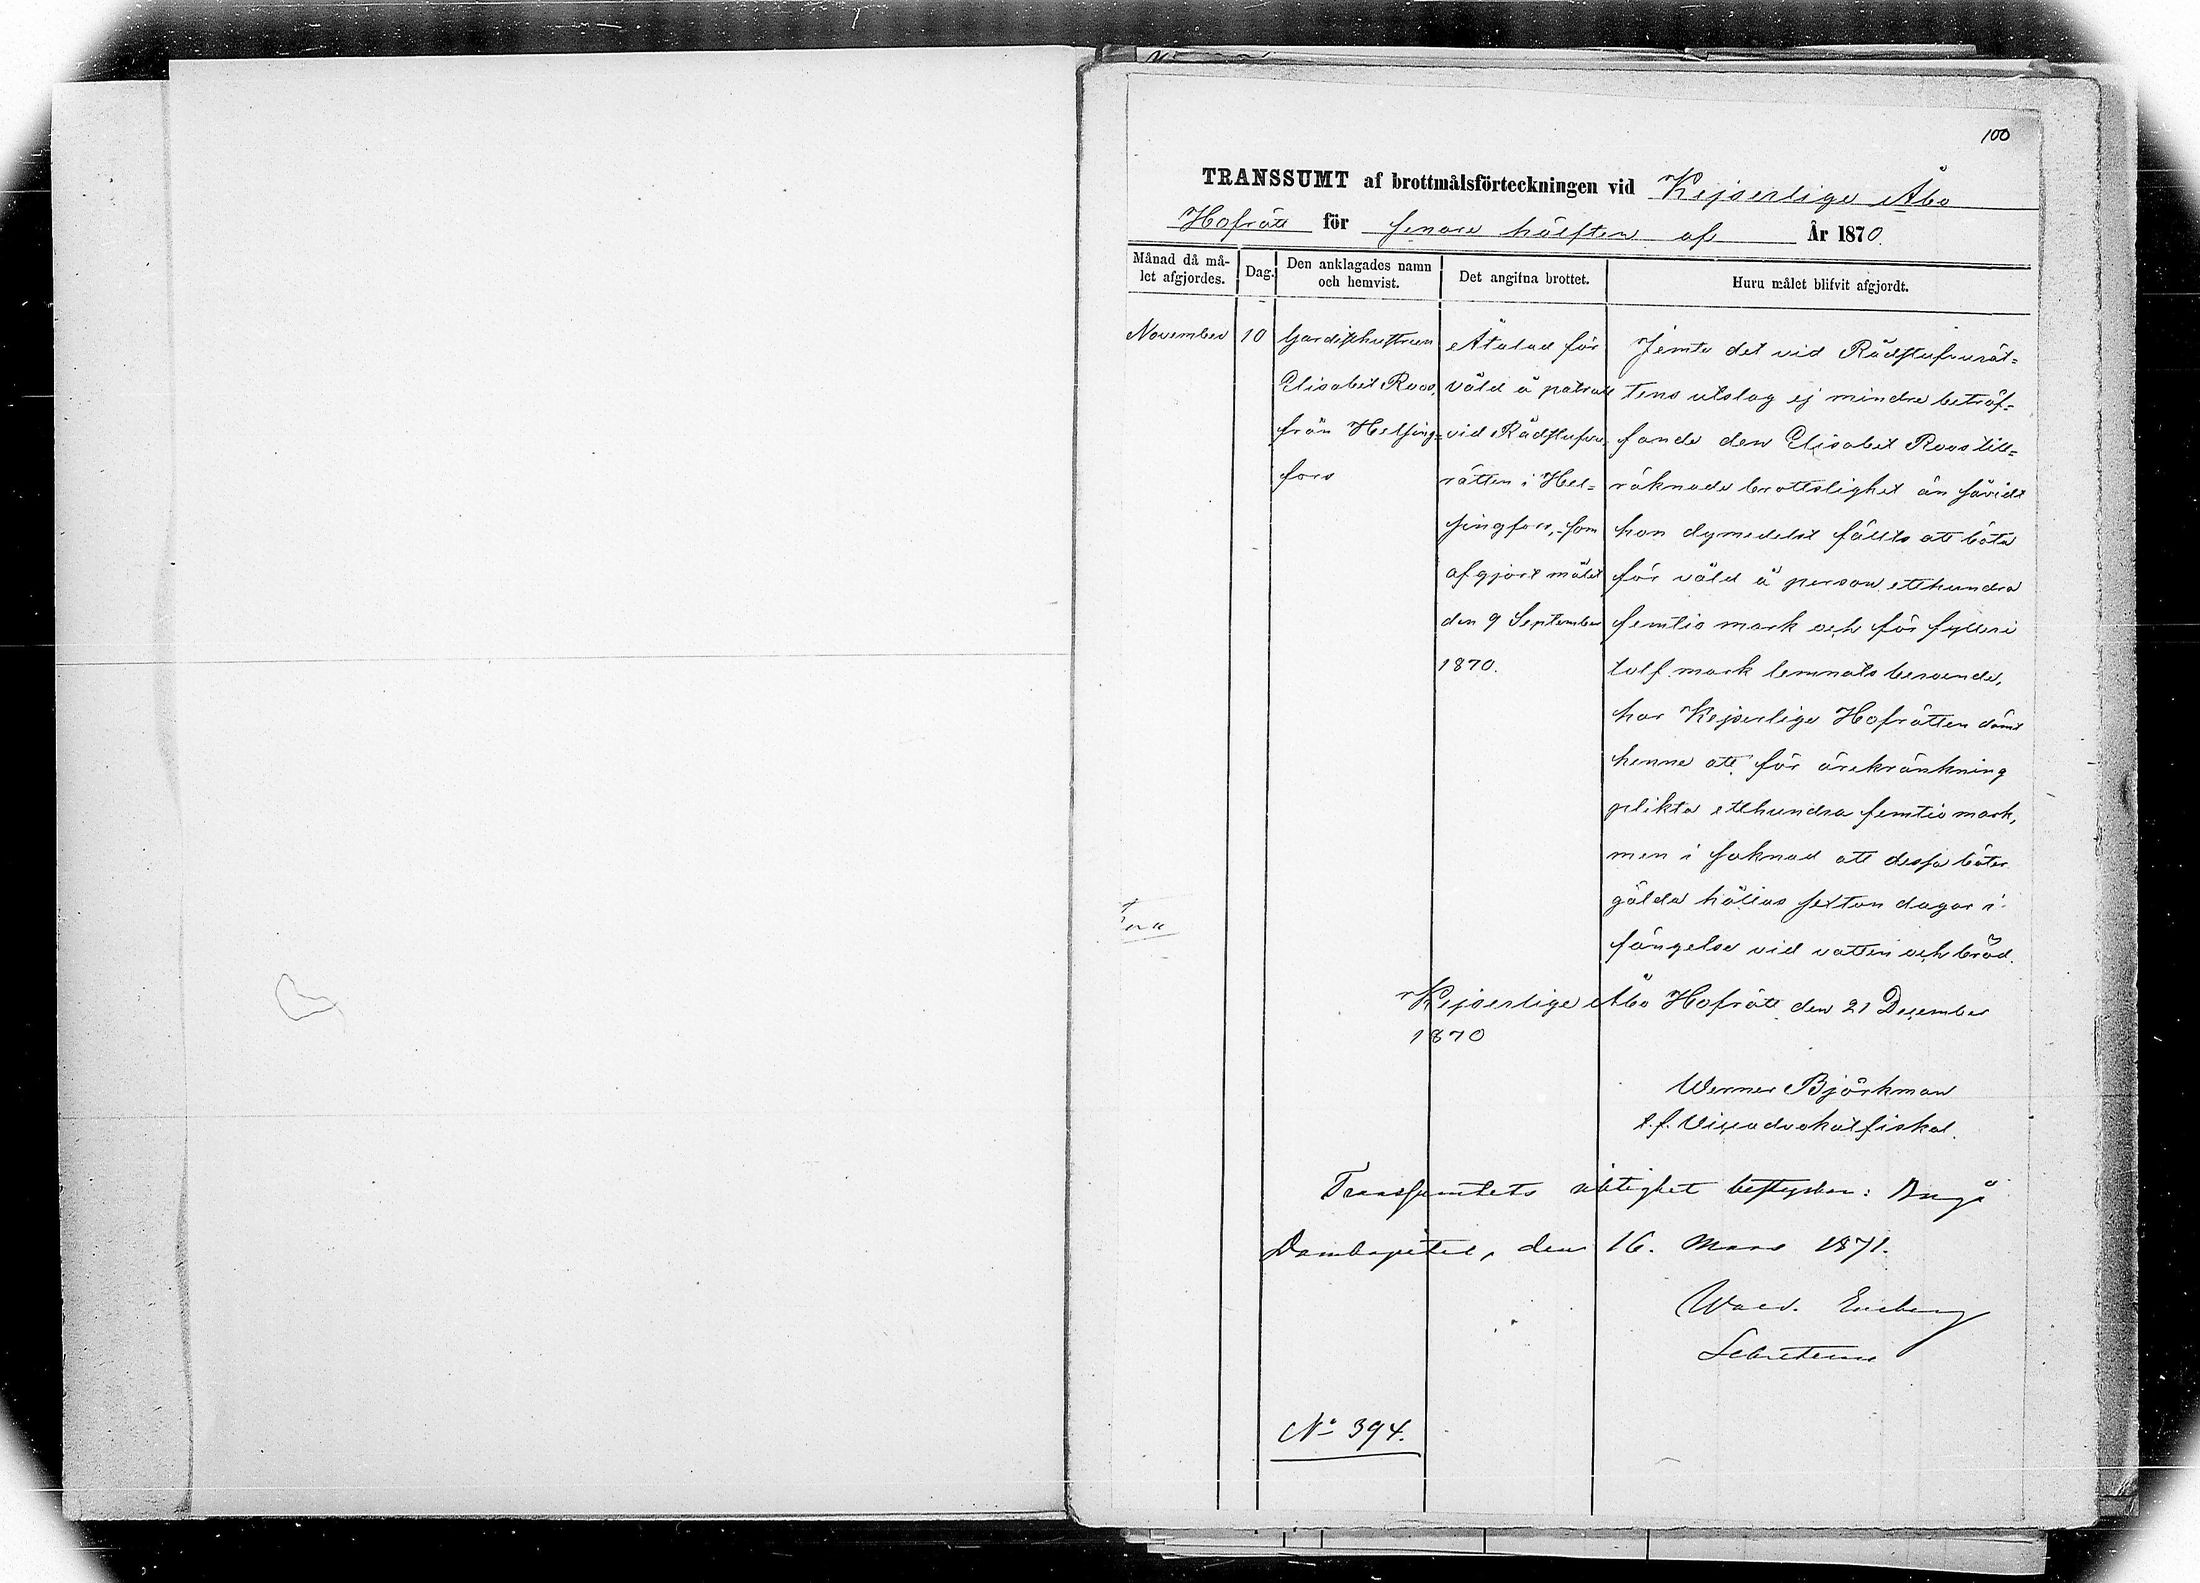 100
TRANSSUMT af brottmålsförteckningen vid Kejserlige Åbo
Hofrätt för senare hälften af År 1870.
Månad då må-
let afgjordes.
Dag.
Den anklagades namn
och hemvist.
Det angifna brottet.
Huru målet blifvit afgjordt.
November
10
Gardisthustrun
Elisabet Roos,
från Helsing-
fors
Åtalad för
våld å patrull
vid Rådstufvu
rätten i Hel-
singfors, som
afgjort målet
den 9 September
1870.
Jemte det vid Rådstufvurät-
tens utslag ej mindre beträf-
fande den Elisabet Roos till-
räknade brottslighet än såvidt
hon dymedelst fällts att böta
för våld å person etthundra
femtio mark och för fylleri
tolf mark lemnats beroende,
har Kejserlige Hofrätten dömt
henne att för ärekränkning
plikta etthundra femtio mark,
men i saknad att dessa böter
gälda hållas sexton dagar i
fängelse vid vatten och bröd.
Kejserlige Åbo Hofrätt den 21 December
1870
Werner Björkman
t.f. Viceadvokatfiskal.
Transsumtets riktighet bestyrker: Borgå
Domkapitel, den 16. Mars 1871.
Sekreterare
No 394.